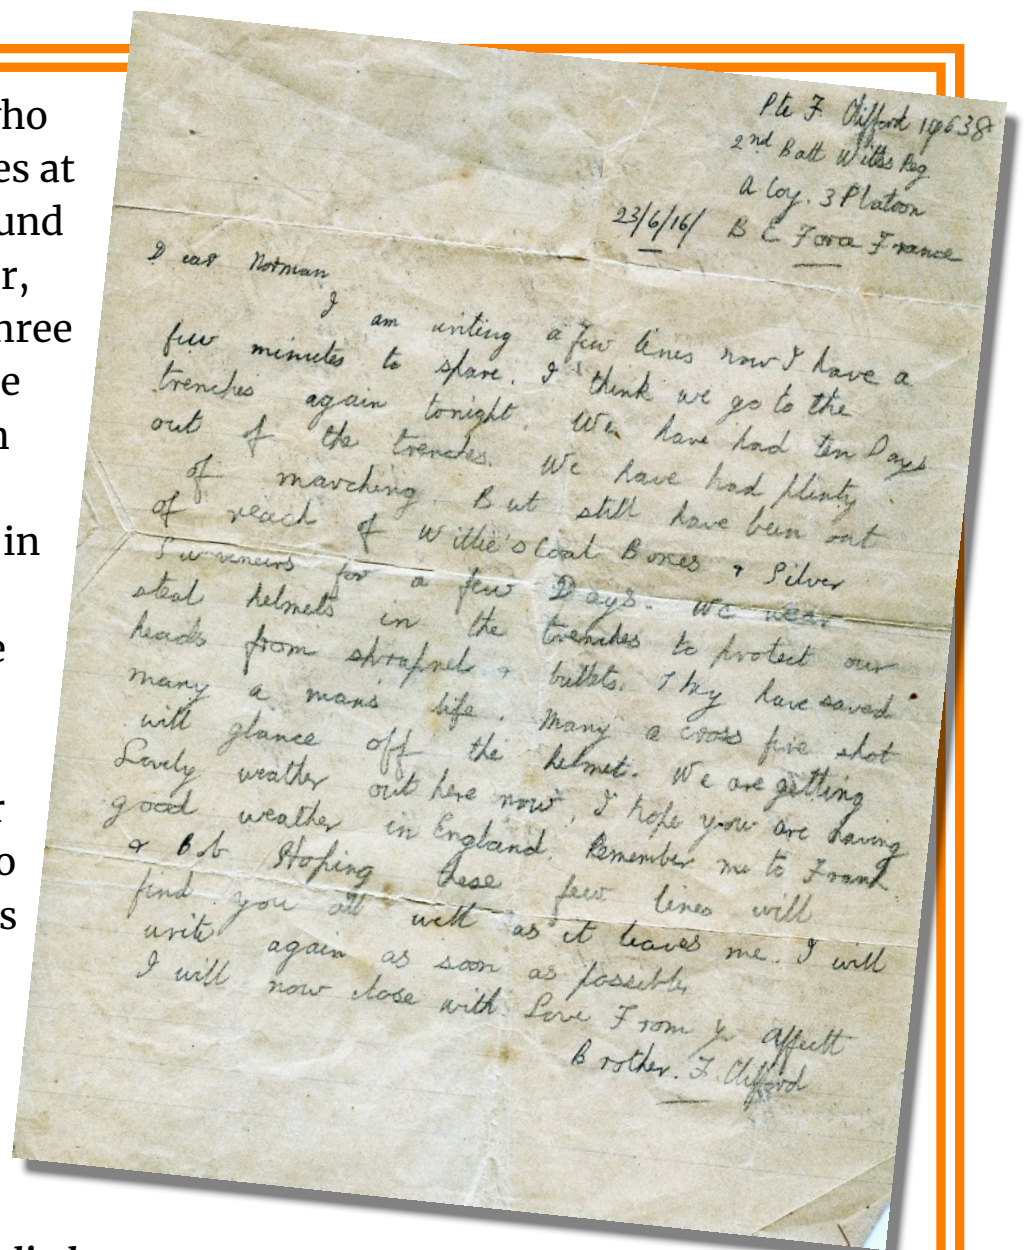 ho
es at
und
r,
hree
e
n
in
e
r
o
s
Pte F. Clifford
2nd Batt Wilts Reg
A Coy. 3 Platoon
23/6/16/ B E Force France
Dear Norman
I am writing a few lines now I have a
few minutes to spare. I think we go to the
trenches again tonight. We have had ten Days
out of the trenches. We have had plenty
of marching. But still have been out
of reach of Willie's Coal Boxes & Silver
Suveneirs for a few Days. We wear
steal helmets in the trenches to protect our
heads from shrapnel & bullets. They have saved
many a mans life. Many a cross fire shot
will glance off the helmet. We are getting
Lovely weather out here now, I hope you are having
good weather in England. Remember me to Frank
& Bob Hoping these few lines will
find you all well as it leaves me. I will
write again as soon as possible
I will now close with Love From yr affect
Brother. F. Clifford